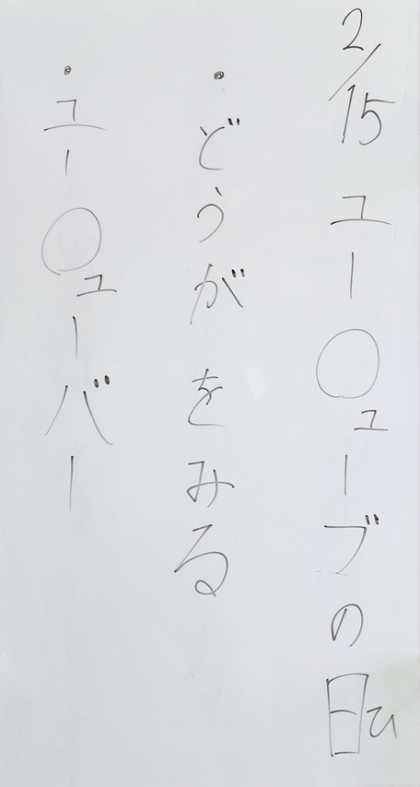 2/15 ユー〇ューブの日ひ
・どうがをみる
・ユー〇ューバー